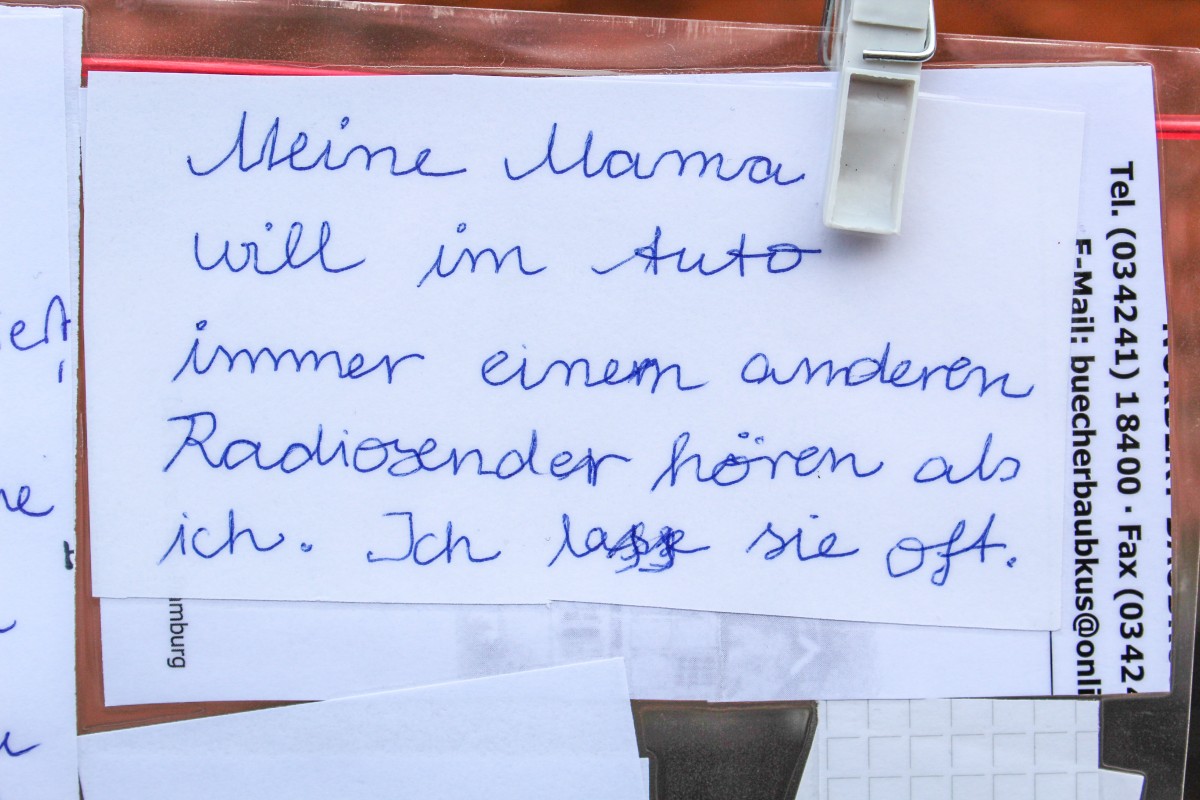 Meine Mama
will im Auto
immer einen anderen
Radiosender hören als
ich. Ich lasse sie oft.
Tel. (034241) 18400 · Fax (0342
E-Mail: buecherbaubkus@onli
mburg